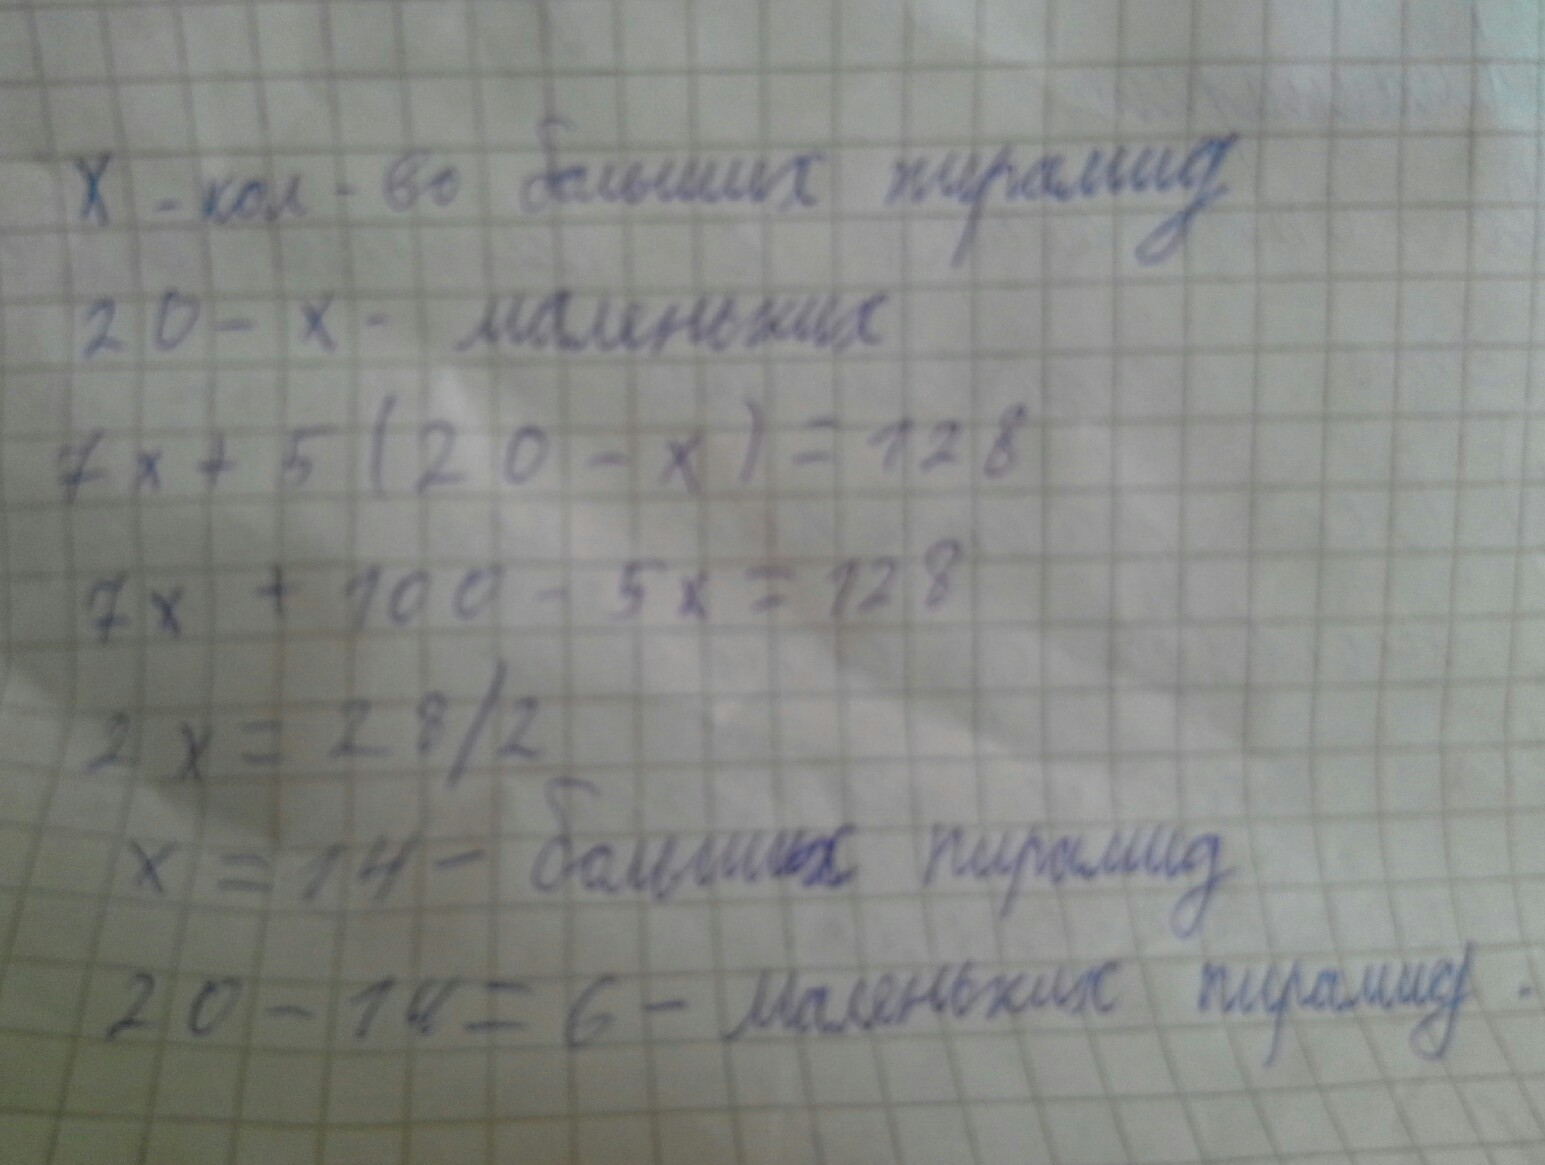 X - кол-во больших пирамид
20 - x - маленьких
7x + 5(20 - x) = 128
7x + 100 - 5x = 128
2x = 28/2
x = 14 - больших пирамид
20 - 14 = 6 - маленьких пирамид.